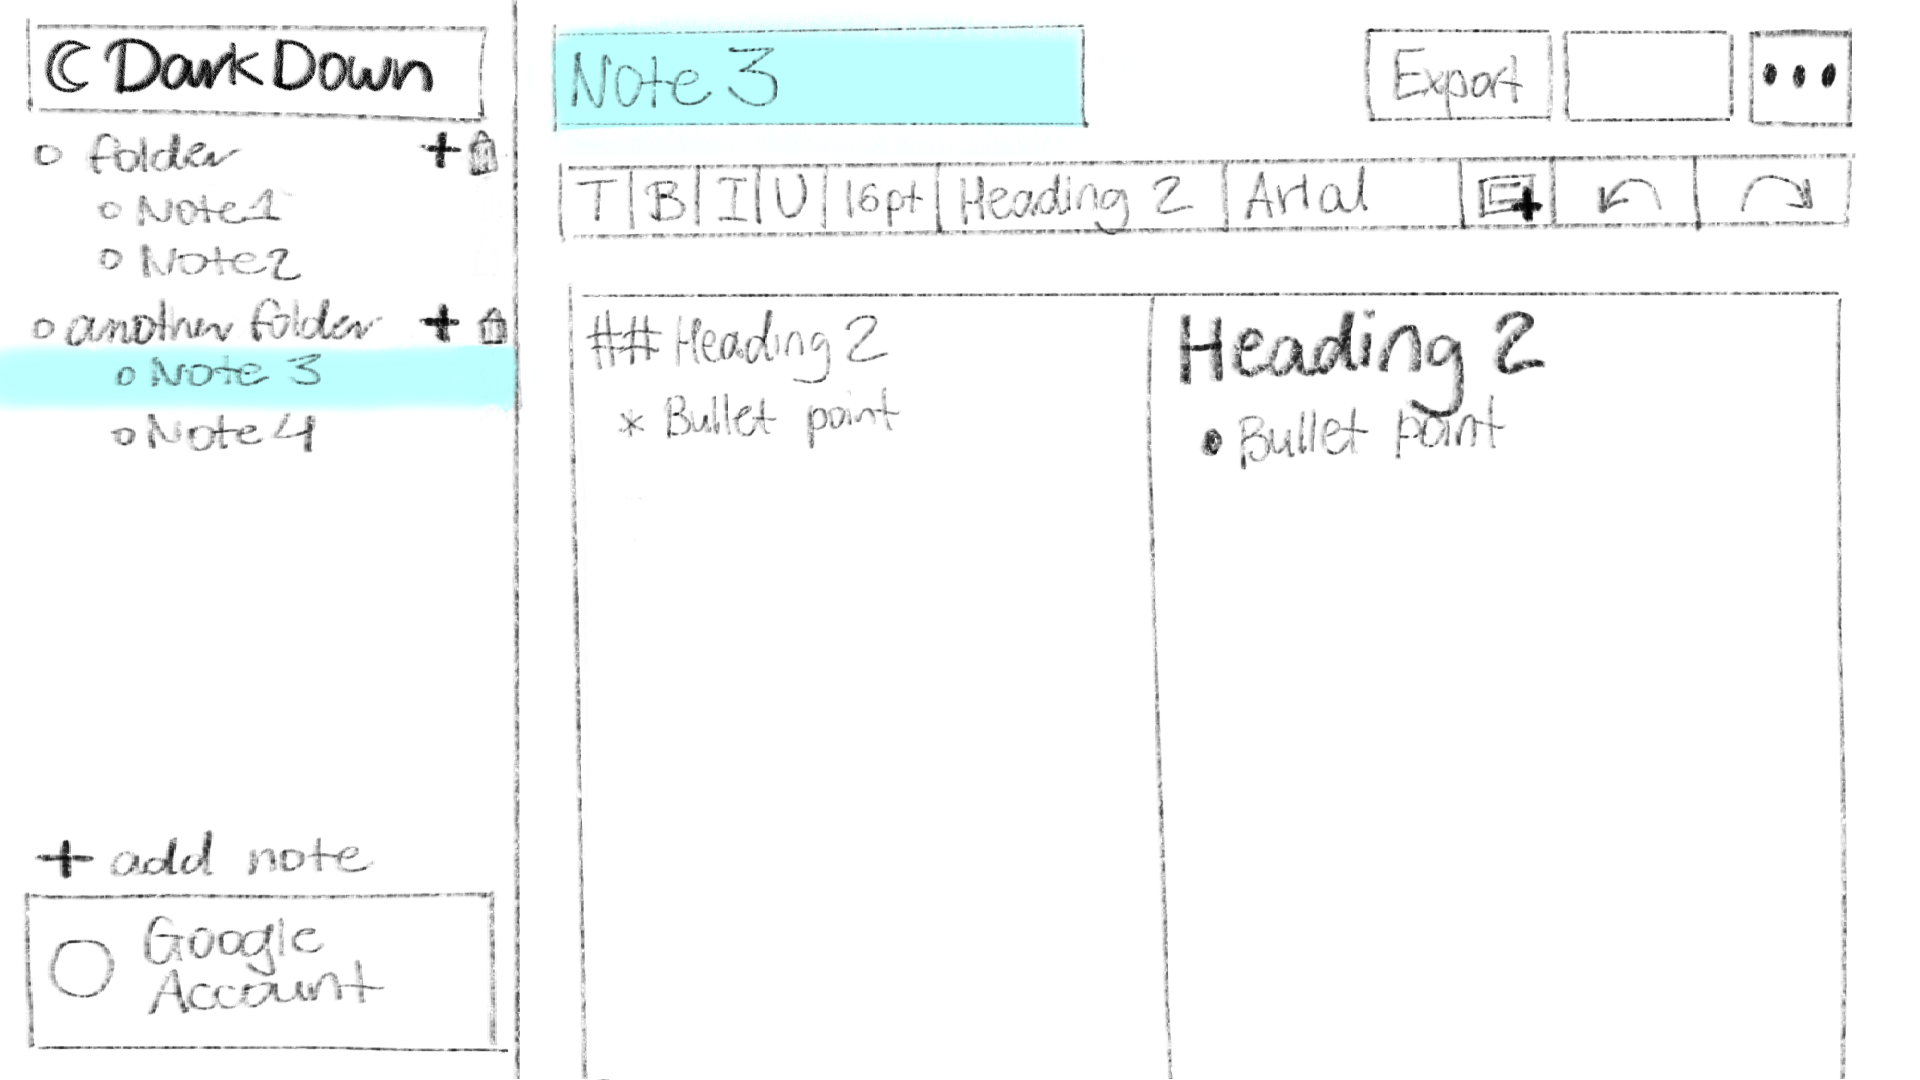 DarkDown
folder +
Note1
Note2
another folder +
Note 3
Note 4
+ add note
Google
Account
Note 3
Export
T B I U 16pt Heading 2 Arial
## Heading 2
* Bullet point
Heading 2
• Bullet point